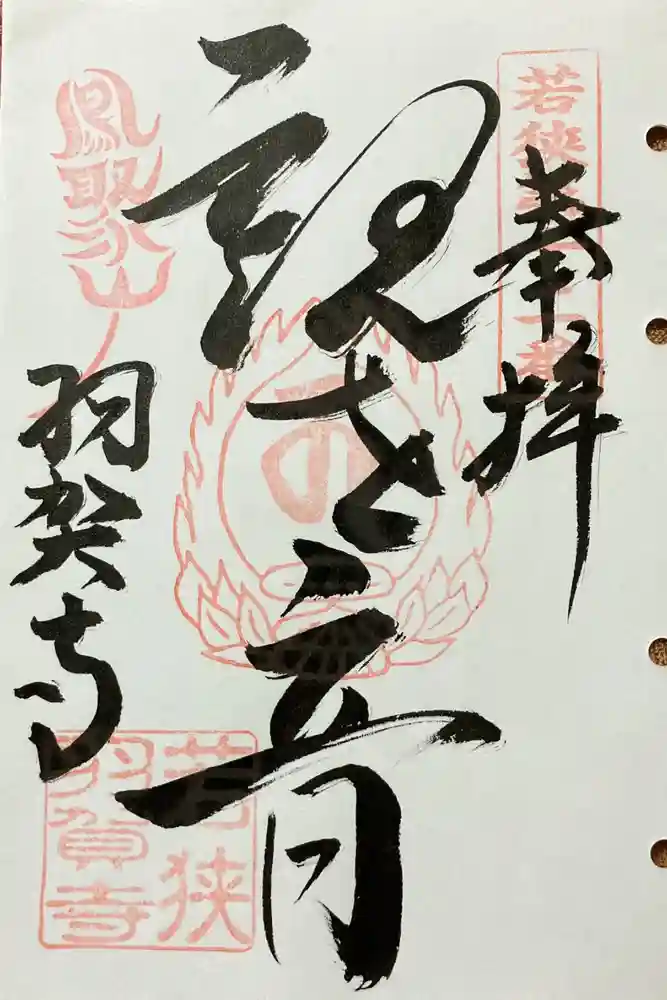 若狭
奉拝
観世音
鳳聚山
羽賀寺
若狭
羽賀寺